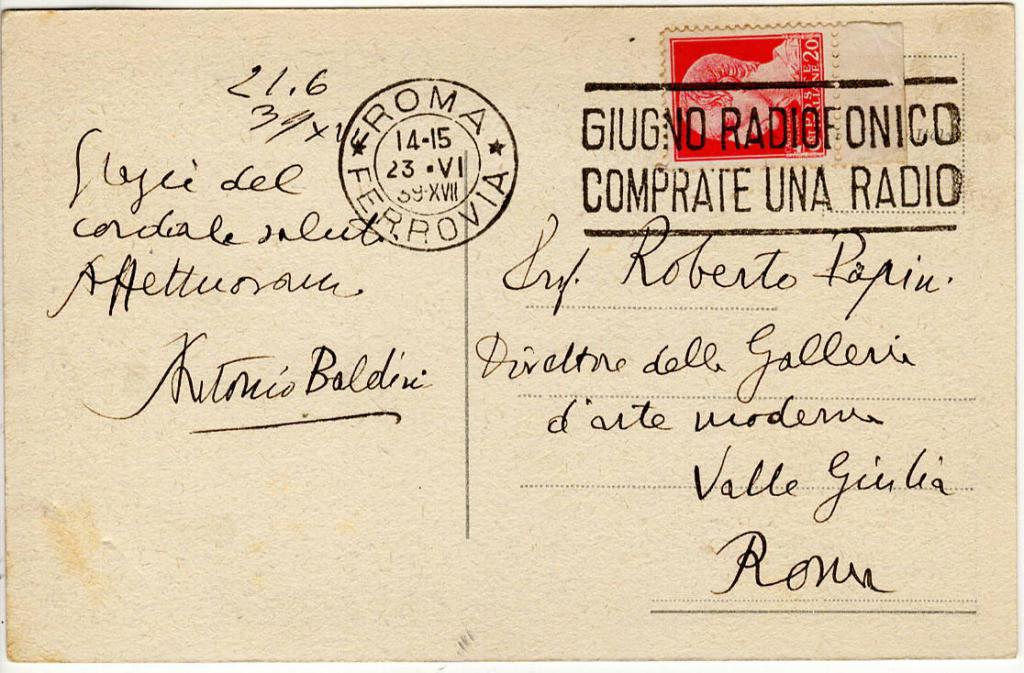 21.6
39 XVII
Grazie del
cordiale saluto.
Affettuosam.
Antonio Baldini
ROMA
FERROVIA
14-15
23 • VI
39•XVII
POSTE
ITALIANE 20
GIUGNO RADIOFONICO
COMPRATE UNA RADIO
Roberto Papini
Direttore della Galleria
d'arte moderna
Valle Giulia
Roma